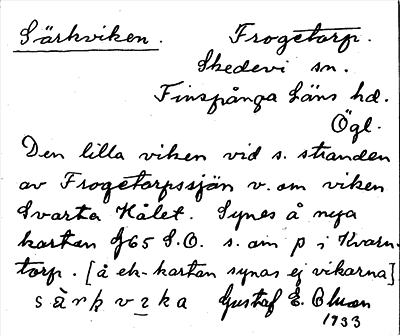 Särkviken. Frogetorp.
Skedevi sn.
Finspånga Läns hd.
Ögl.
Den lilla viken vid s. stranden
av Frogetorpssjön v. om viken
Svarta Hålet. Synes å nya
kartan J65 S.O. s. om p i Kvarn-
torp. [å ek-kartan synas ej vikarna]
Gustaf E. Oluon
1933